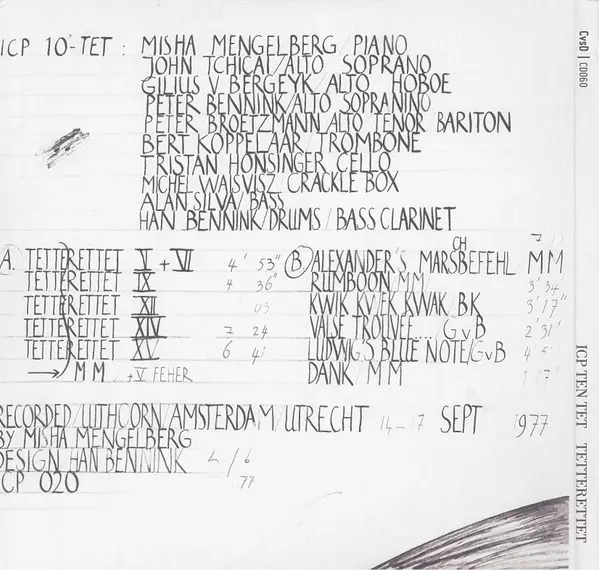 ICP 10'-TET : MISHA MENGELBERG / PIANO
JOHN TCHICAI/ALTO SOPRANO
GILIUS V BERGEYK/ALTO HOBOE
PETER BENNINK/ALTO SOPRANINO
PETER BROETZMANN/ALTO TENOR BARITON
BERT KOPPELAAR/TROMBONE
TRISTAN HONSINGER CELLO
MICHEL WAISVISZ CRACKLE BOX
ALAN SILVA/BASS
HAN BENNINK/DRUMS/BASS CLARINET
A. TETTERETTET V + VI 4' 53"
TETTERETTET IX 4 36"
TETTERETTET XII 03
TETTERETTET XIV 7 24
TETTERETTET XV 6 41
→ MM / +V FEHER
B ALEXANDER'S MARSCHBEFEHL MM
RUMBOON MM 3' 34
KWIK KWEK KWAK/BK 3' 17"
VALSE TROUVEE..../GvB 2' 31'
LUDWIG'S BLUE NOTE/GvB 4
DANK / MM
RECORDED/UITHOORN/AMSTERDAM/UTRECHT 14-17 SEPT 1977
BY MISHA MENGELBERG
DESIGN HAN BENNINK
ICP 020
77
CvsD | CD060
ICP TENTET TETTERETTET